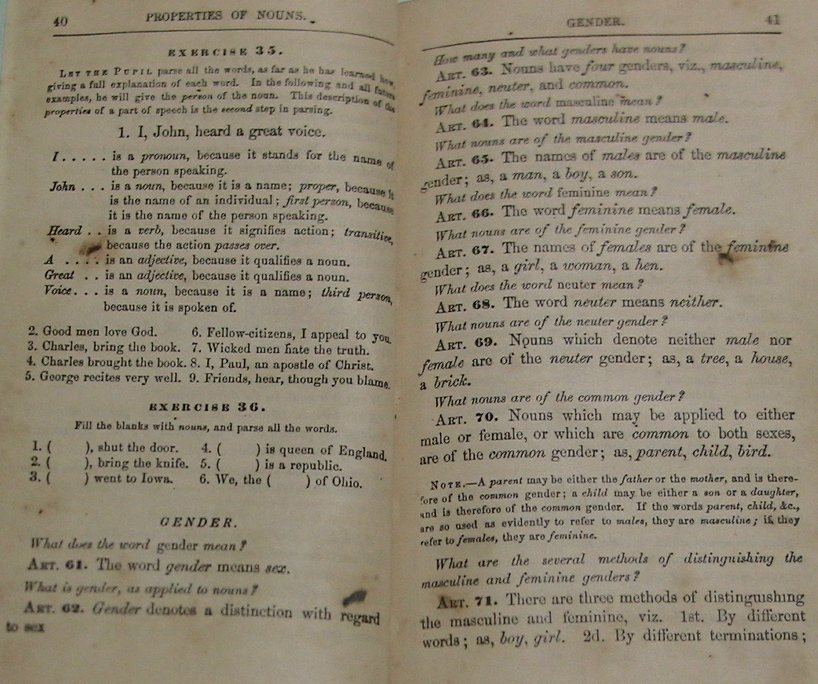 40 PROPERTIES OF NOUNS.
EXERCISE 35.
LET THE PUPIL parse all the words, as far as he has learned how,
giving a full explanation of each word. In the following and all future
examples, he will give the person of the noun. This description of the
properties of a part of speech is the second step in parsing.
1. I, John, heard a great voice.
I . . . . . is a pronoun, because it stands for the name of
the person speaking.
John . . . is a noun, because it is a name; proper, because it
is the name of an individual; first person, because
it is the name of the person speaking.
Heard . . is a verb, because it signifies action; transitive,
because the action passes over.
A . . . . is an adjective, because it qualifies a noun.
Great . . is an adjective, because it qualifies a noun.
Voice . . . is a noun, because it is a name; third person,
because it is spoken of.
2. Good men love God. 6. Fellow-citizens, I appeal to you.
3. Charles, bring the book. 7. Wicked men hate the truth.
4. Charles brought the book. 8. I, Paul, an apostle of Christ.
5. George recites very well. 9. Friends, hear, though you blame.
EXERCISE 36.
Fill the blanks with nouns, and parse all the words.
1. ( ), shut the door. 4. ( ) is queen of England.
2. ( ), bring the knife. 5. ( ) is a republic.
3. ( ) went to Iowa. 6. We, the ( ) of Ohio.
GENDER.
What does the word gender mean?
ART. 61. The word gender means sex.
What is gender, as applied to nouns?
ART. 62. Gender denotes a distinction with regard
to sex
GENDER. 41
How many and what genders have nouns?
ART. 63. Nouns have four genders, viz., masculine,
feminine, neuter, and common.
What does the word masculine mean?
ART. 64. The word masculine means male.
What nouns are of the masculine gender?
ART. 65. The names of males are of the masculine
gender; as, a man, a boy, a son.
What does the word feminine mean?
ART. 66. The word feminine means female.
What nouns are of the feminine gender?
ART. 67. The names of females are of the feminine
gender; as, a girl, a woman, a hen.
What does the word neuter mean?
ART. 68. The word neuter means neither.
What nouns are of the neuter gender?
ART. 69. Nouns which denote neither male nor
female are of the neuter gender; as, a tree, a house,
a brick.
What nouns are of the common gender?
ART. 70. Nouns which may be applied to either
male or female, or which are common to both sexes,
are of the common gender; as, parent, child, bird.
NOTE.—A parent may be either the father or the mother, and is there-
fore of the common gender; a child may be either a son or a daughter,
and is therefore of the common gender. If the words parent, child, &c.,
are so used as evidently to refer to males, they are masculine; if they
refer to females, they are feminine.
What are the several methods of distinguishing the
masculine and feminine genders?
ART. 71. There are three methods of distinguishing
the masculine and feminine, viz. 1st. By different
words; as, boy, girl. 2d. By different terminations;